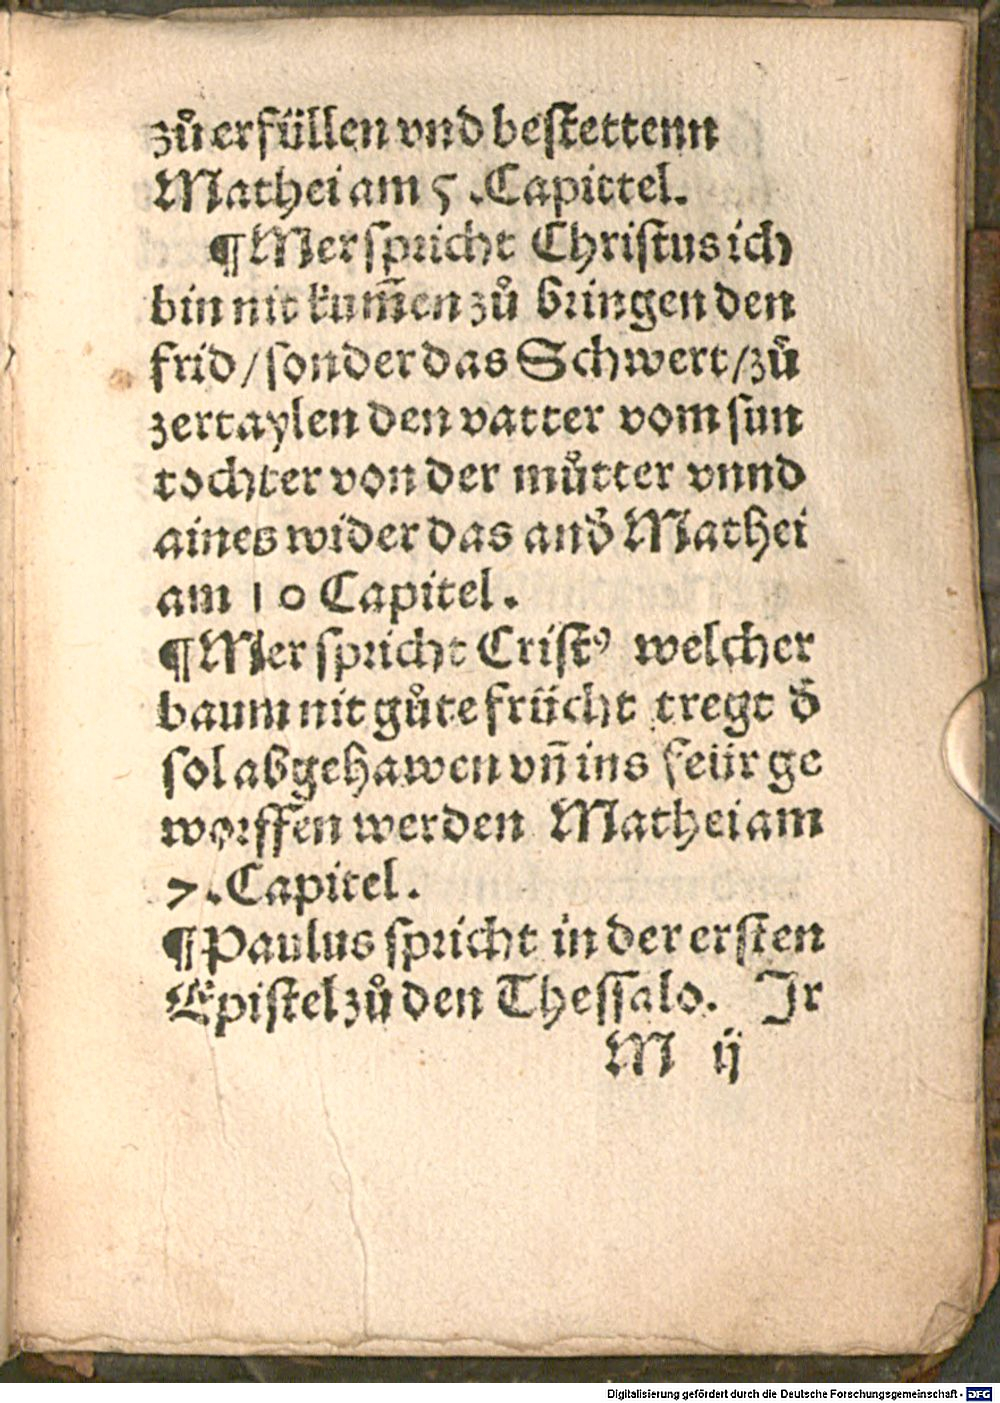 zů erfüllen vnd bestettenn
Mathei am 5 .Capittel.
¶ Mer spricht Christus ich
bin nit kum̃en zů bringen den
frid / sonder das Schwert / zů
zertaylen den vatter vom sun
tochter von der můtter vnnd
aines wider das and̕ Mathei
am 10 Capitel.
¶ Mer spricht Cristꝰ welcher
baum nit gůte frücht tregt d̕
sol abgehawen vñ ins feür ge
worffen werden Mathei am
7 .Capitel.
¶ Paulus spricht in der ersten
Epistel zů den Thessalo. Jr
M ij
Digitalisierung gefördert durch die Deutsche Forschungsgemeinschaft - DFG